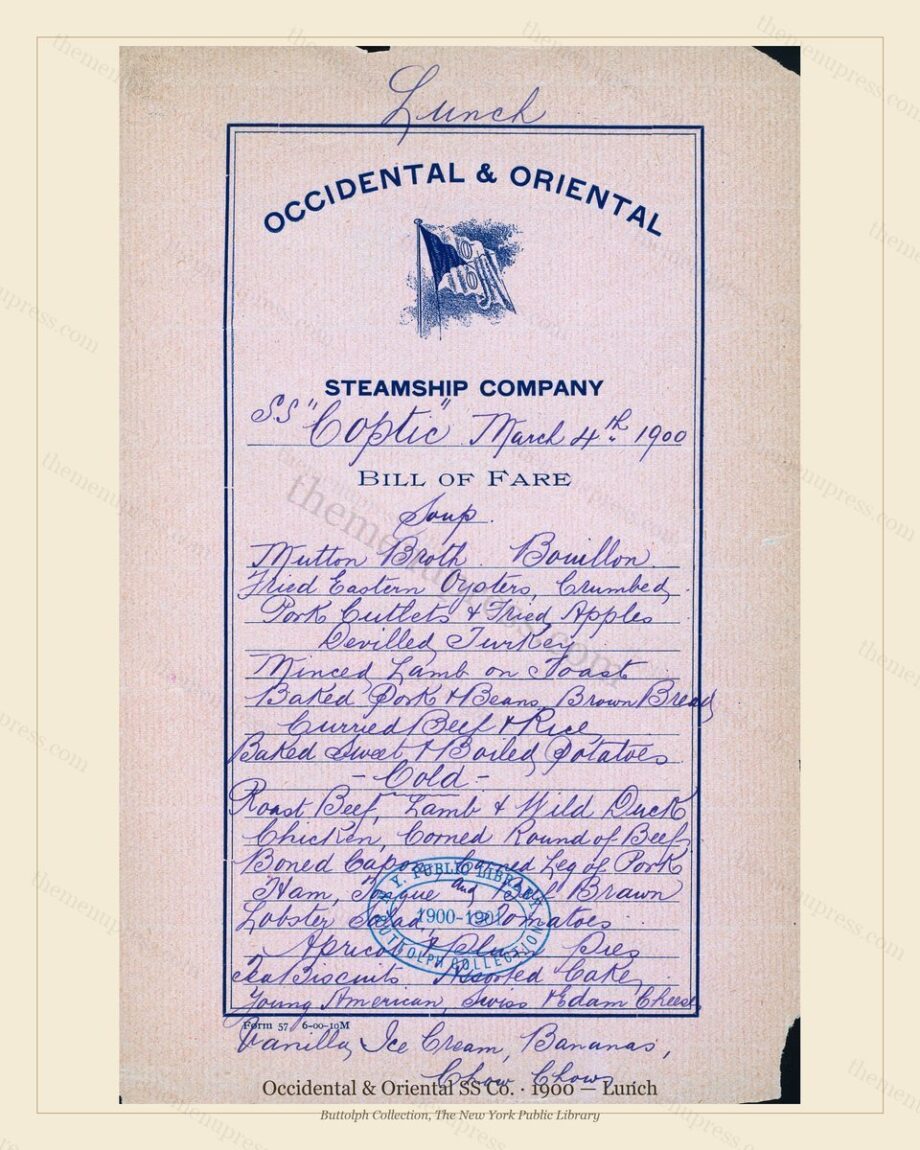 Lunch
OCCIDENTAL & ORIENTAL
STEAMSHIP COMPANY
SS "Coptic" March 4th 1900
BILL OF FARE
Soup.
Mutton Broth. Bouillon.
Fried Eastern Oysters, Crumbed,
Pork Cutlets & Fried Apples
Devilled Turkey
Minced Lamb on Toast
Baked Pork & Beans, Brown Bread
Curried Beef & Rice
Baked Sweet & Boiled Potatoes
- Cold -
Roast Beef, Lamb & Wild Duck
Chicken, Corned Round of Beef,
Boned Capon, Corned Leg of Pork
Ham, Tongue and Brawn
Lobster Salad, Tomatoes
Apricot & Plum Pies
Tea Biscuits Assorted Cake,
Young American, Swiss & Edam Cheese
Form 57 6-00-10M
Vanilla Ice Cream, Bananas,
Chow Chow
N. Y. PUBLIC LIBRARY
1900-1901
BUTTOLPH COLLECTION
Occidental & Oriental SS Co. · 1900 — Lunch
Buttolph Collection, The New York Public Library
themenupress.com